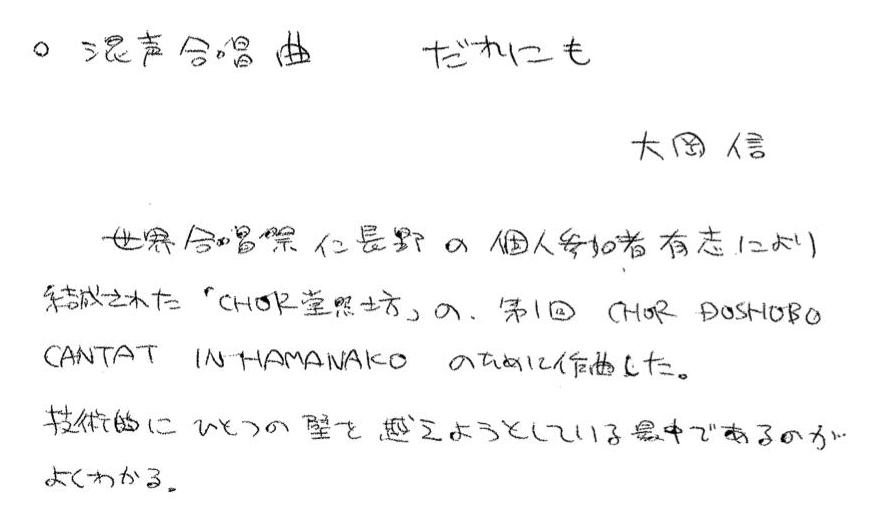 ○ 混声合唱曲　だれにも
大岡信
世界合唱祭 仁 長野の個人参加者有志により
結成された「CHOR堂照坊」の、第1回 CHOR DOSHOBO
CANTAT IN HAMANAKO のために作曲した。
技術的にひとつの壁を越えようとしている最中であるのが
よくわかる。